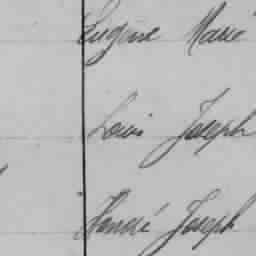 Eugène Marie
Louis Joseph
André Joseph